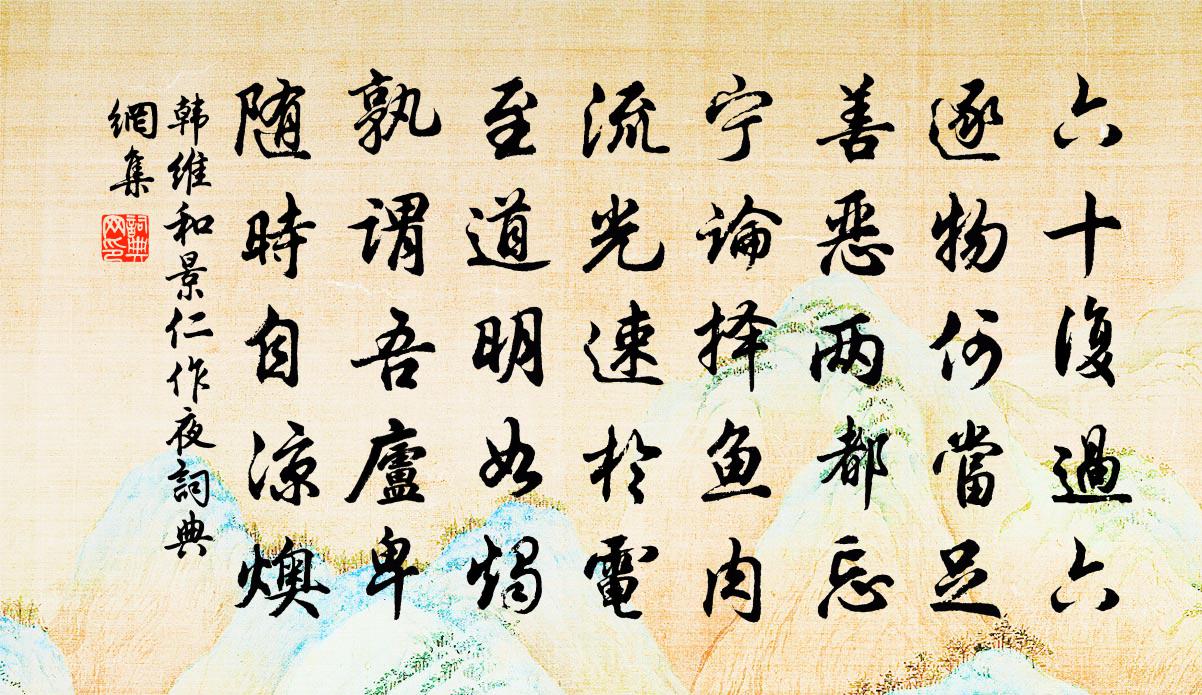 六十復過六
逐物何當足
善惡两都忘
宁論择鱼肉
流光速於電
至道明如燭
孰謂吾廬卑
随時自凉燠
韩维和景仁作夜詞典
網集
詞典
网印